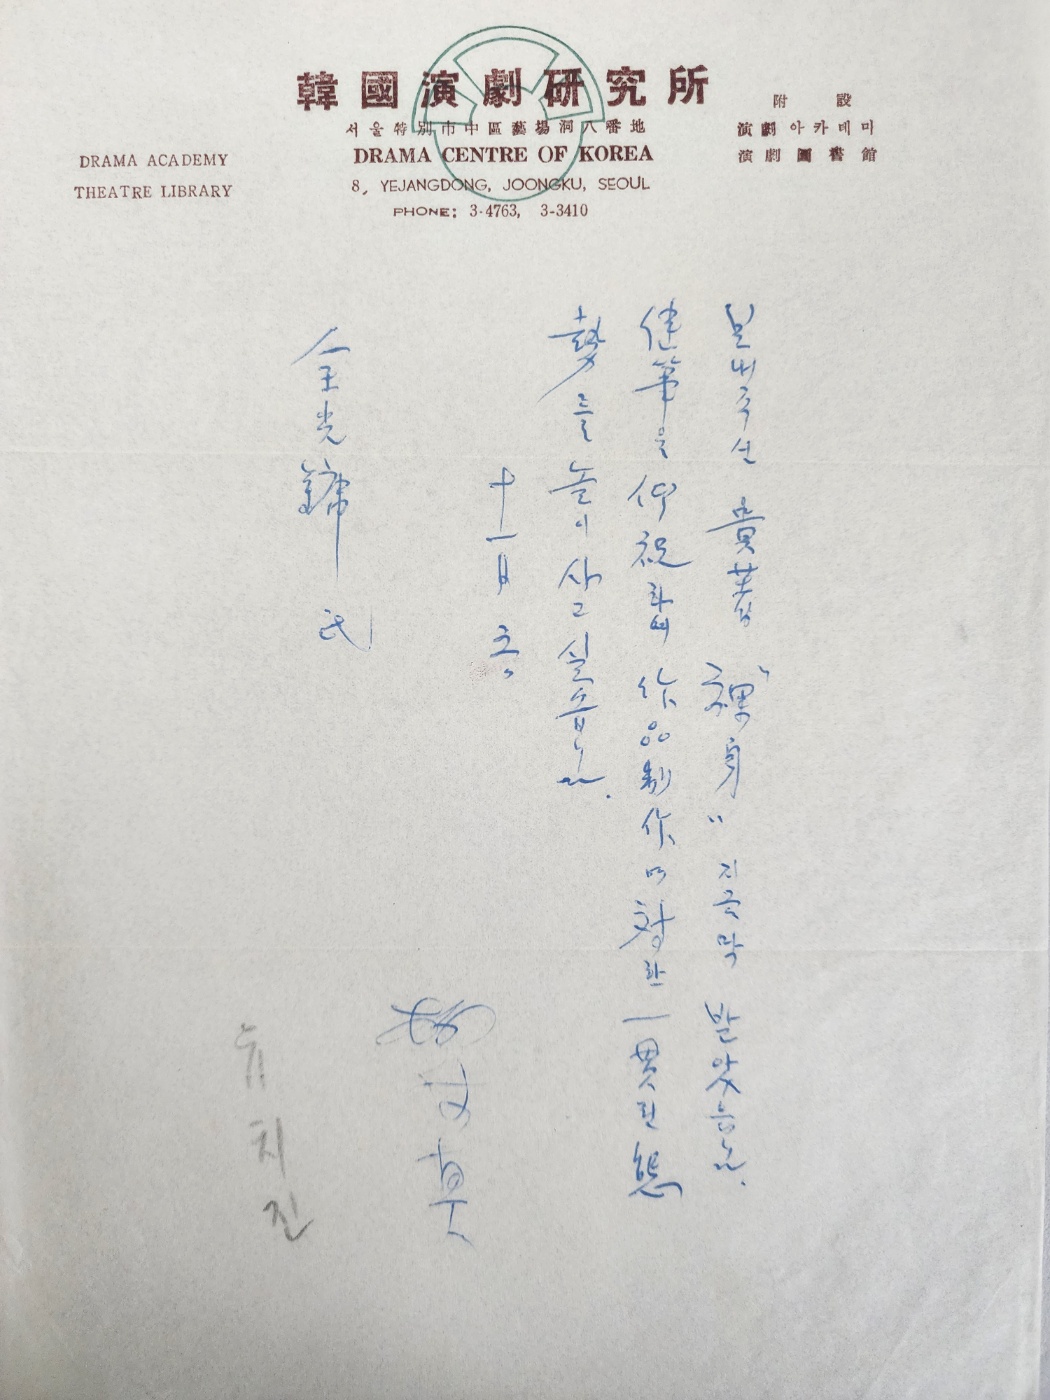 韓國演劇硏究所
서울特別市中區藝場洞八番地
DRAMA CENTRE OF KOREA
8, YEJANGDONG, JOONGKU, SEOUL
PHONE: 3-4763, 3-3410
DRAMA ACADEMY
THEATRE LIBRARY
附設
演劇아카데미
演劇圖書館
보내주신 貴著 "裸身" 지금 막 받았습니다.
健筆을 仰祝하며 作品制作에 對한 一貫된 態
勢를 높이 사고 싶습니다.
十一月
全光鏞 氏
柳致眞
유치진